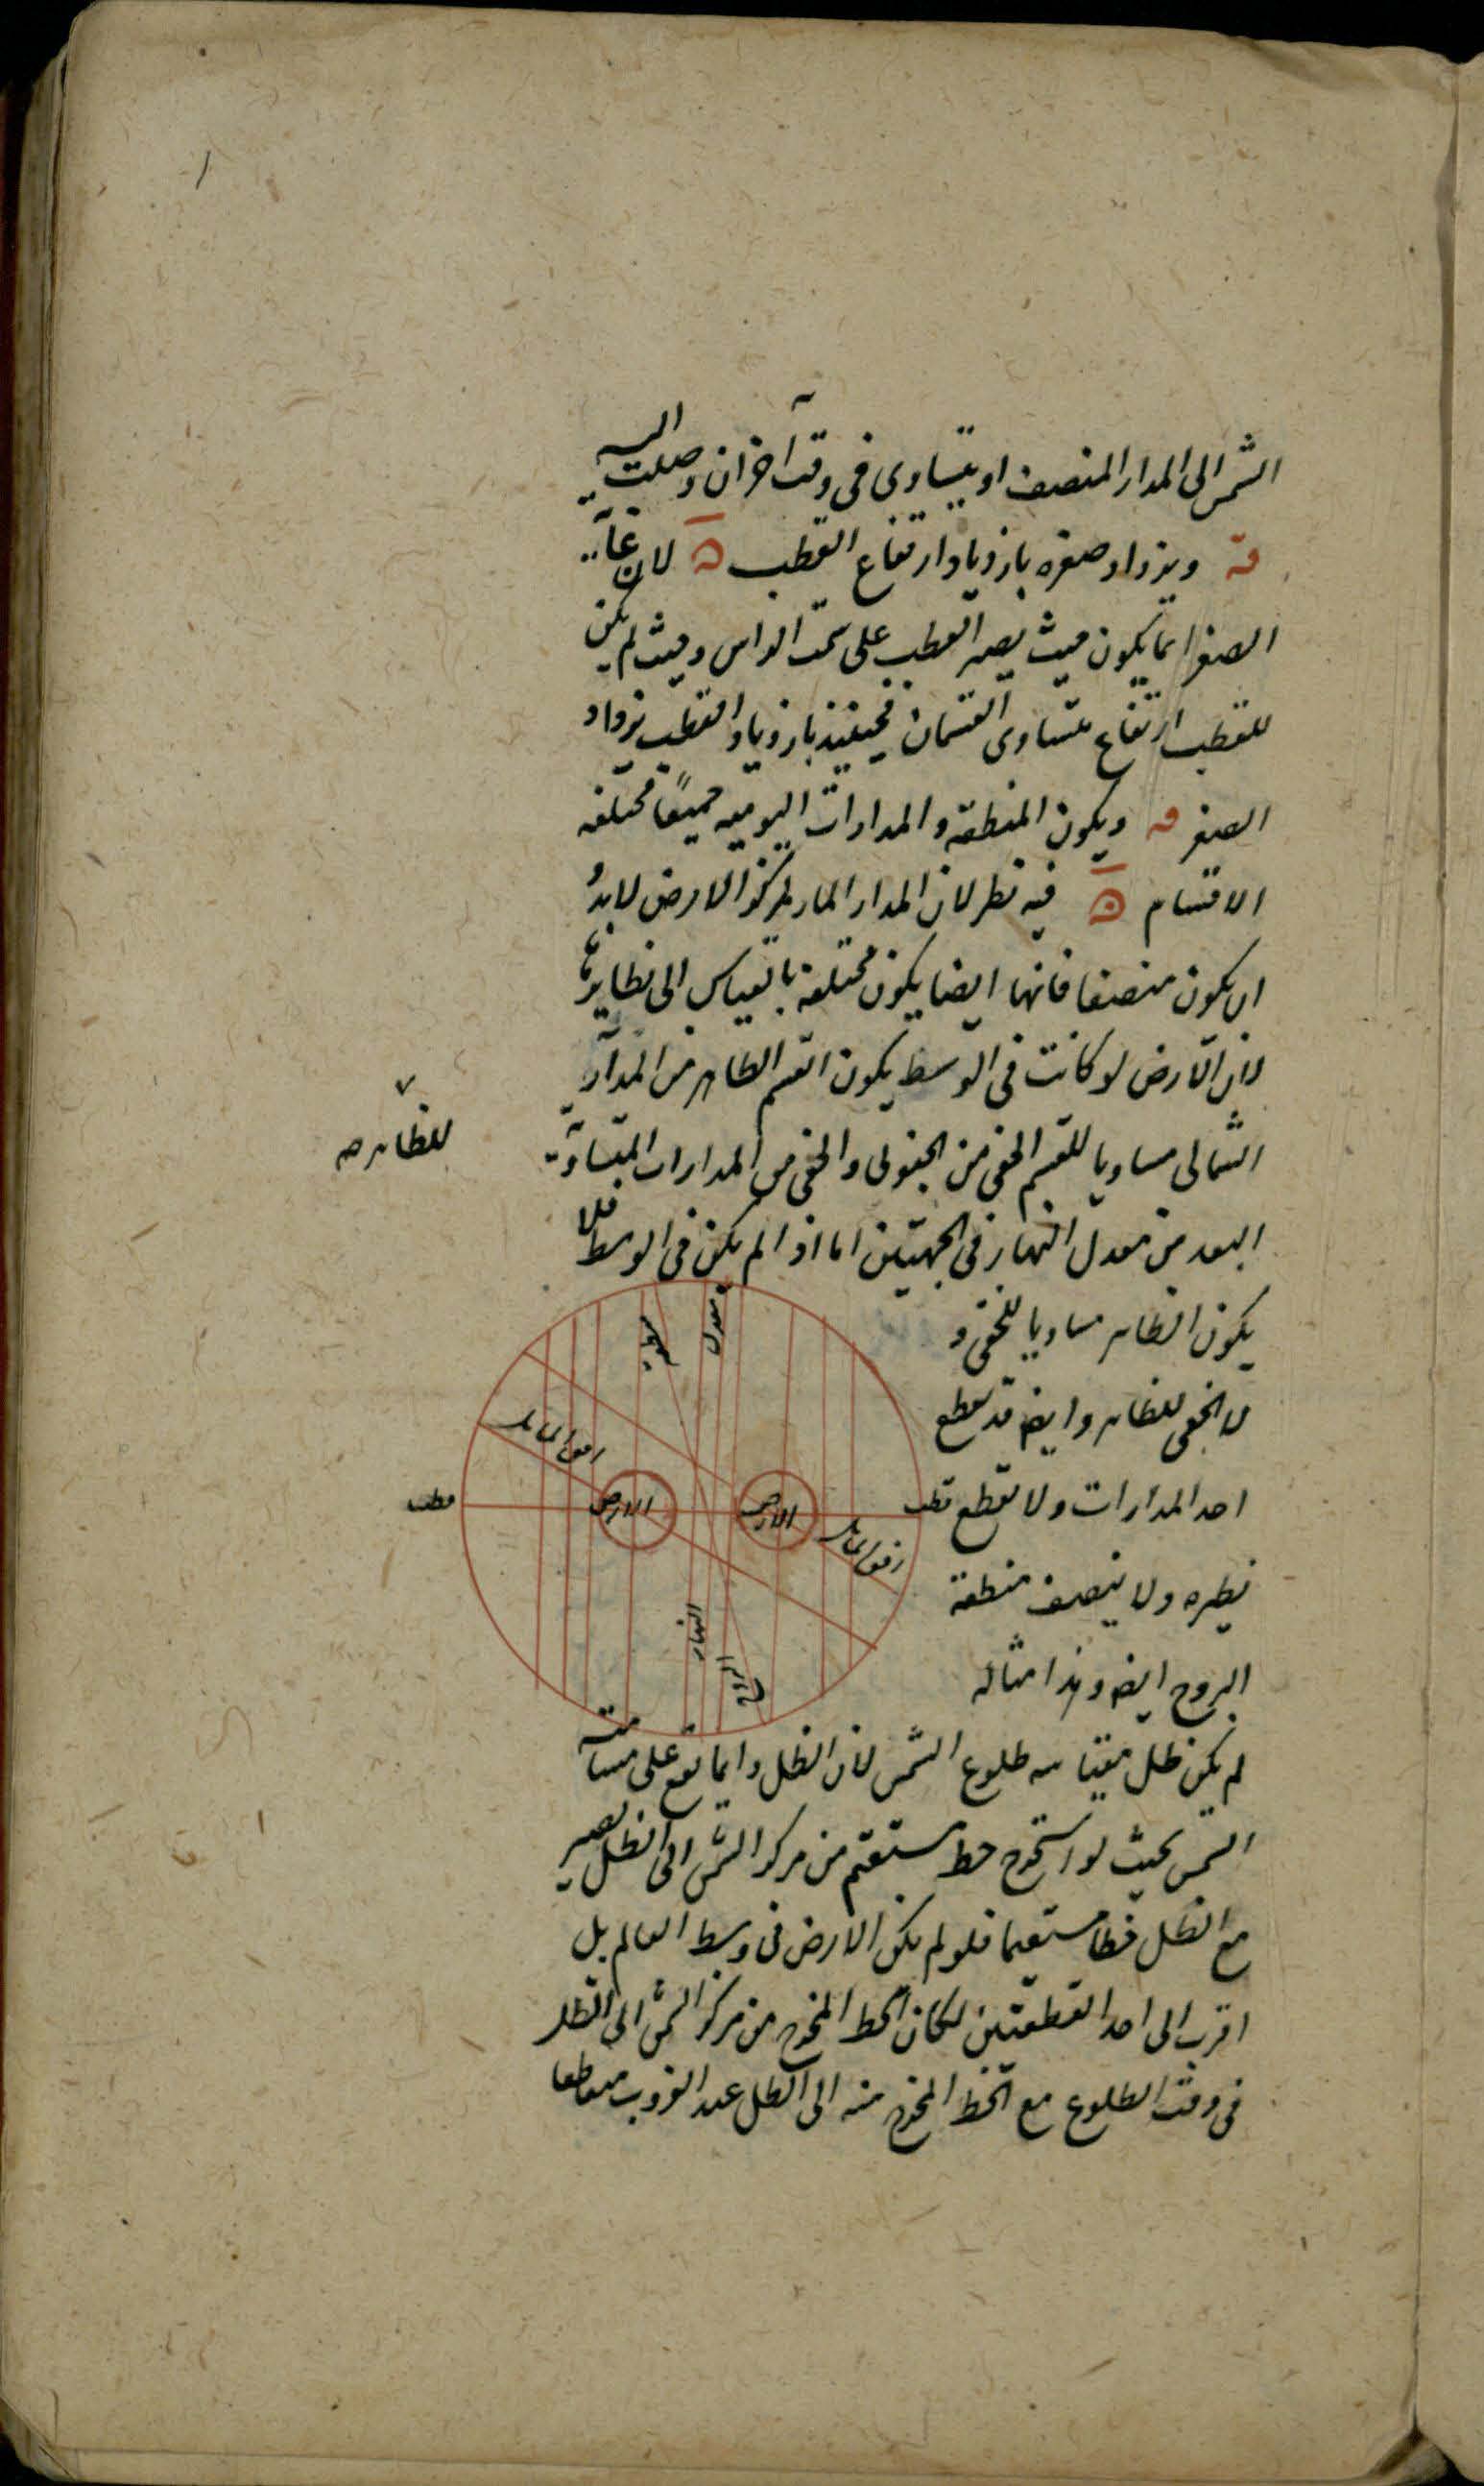 الشمس الى المدار المنصف او يتساوى فى وقت آخر ان وصلت اليه
قه ويزداد صغره بازدياد ارتفاع القطب ه لان غاية
الصغر انما يكون حيث يصير القطب على سمت الراس وحيث لم يكن
للقطب ارتفاع يتساوى القسمان فحينئذ بازدياد القطب يزداد
الصغر قه ويكون المنطقة والمدارات اليومية جميعًا مختلفة
الاقسام ه فيه نظر لان المدار المار بمركز الارض لابد
ان يكون منصفا فانها ايضا يكون مختلفة بالقياس الى نظايرها
لان الارض لو كانت فى الوسط يكون القسم الظاهر من المدار
الشمالى مساويا للقسم الخفى من الجنوبى والخفى من المدارات المتساوية
للظاهره
البعد من معدل النهار فى الجهتين اما اذا لم يكن فى الوسط فلا
يكون الظاهر مساويا للخفى و
لا الخفى للظاهر وايضا قد يقطع
احد المدارات ولا يقطع
نظيره ولا ينصف منطقة
البروج ايضا وهذا مثاله
معدل
النهار
منطقة
البروج
افق المايل
الارض
الارض
افق المايل
قطب
قطب
لم يكن ظل مقياسه طلوع الشمس لان الظل دايما يقع على مسامتة
الشمس بحيث لو استخرج خط مستقيم من مركز الشمس الى الظل يصير
مع الظل خطا مستقيما فلو لم يكن الارض فى وسط العالم بل
اقرب الى احد القطعتين لكان الخط المخرج من مركز الشمس الى الظل
فى وقت الطلوع مع الخط المخرج منه الى الظل عند الغروب متقاطعا